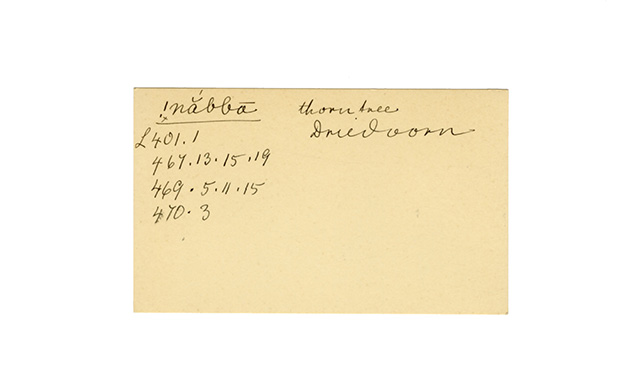 !nắbbō thorn tree
Driedoorn
L401.1
467.13.15.19
469.5.11.15
470.3